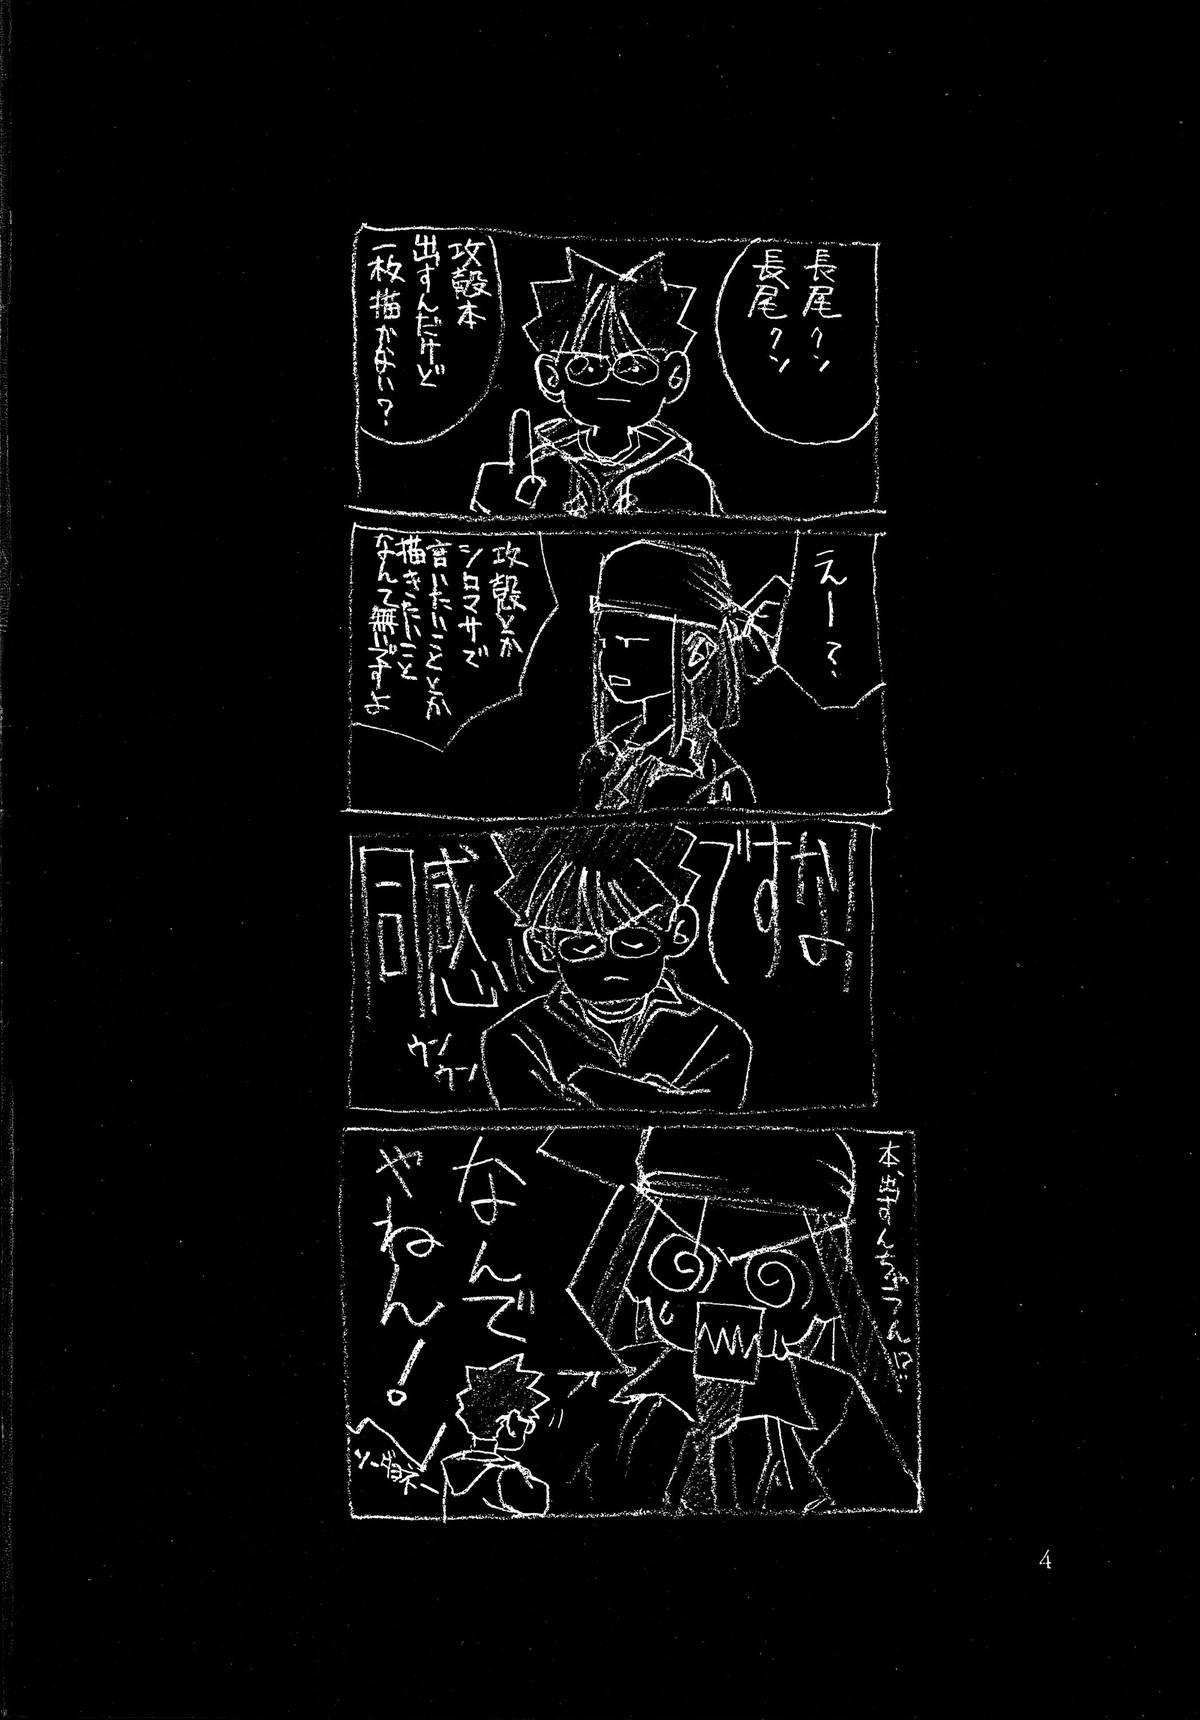 長尾クン
長尾クン
攻殻本
出すんだけど
一枚描かない?
えー?
攻殻とか
シロマサで
言いたいこととか
描きたいこと
なんて無いですよ
ですな
同感
ウン
ウン
本、出すんちゃうん!?
なんで
やねん!
ソーダヨネー
4